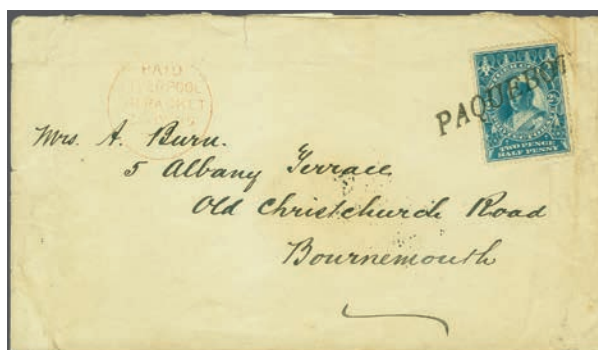 PAID
LIVERPOOL
PACKET
PAQUEBOT
TWO PENCE
HALF PENNY
Mrs. A. Burn.
5 Albany Terrace
Old Christchurch Road
Bournemouth